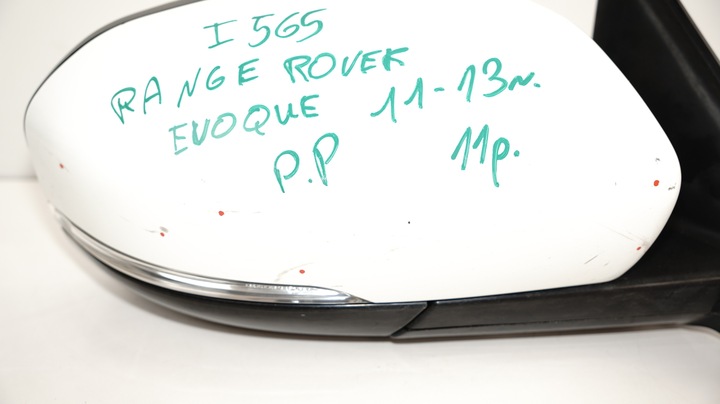 I 565
RANGE ROVER
EVOQUE 11-13r.
P.P 11p.